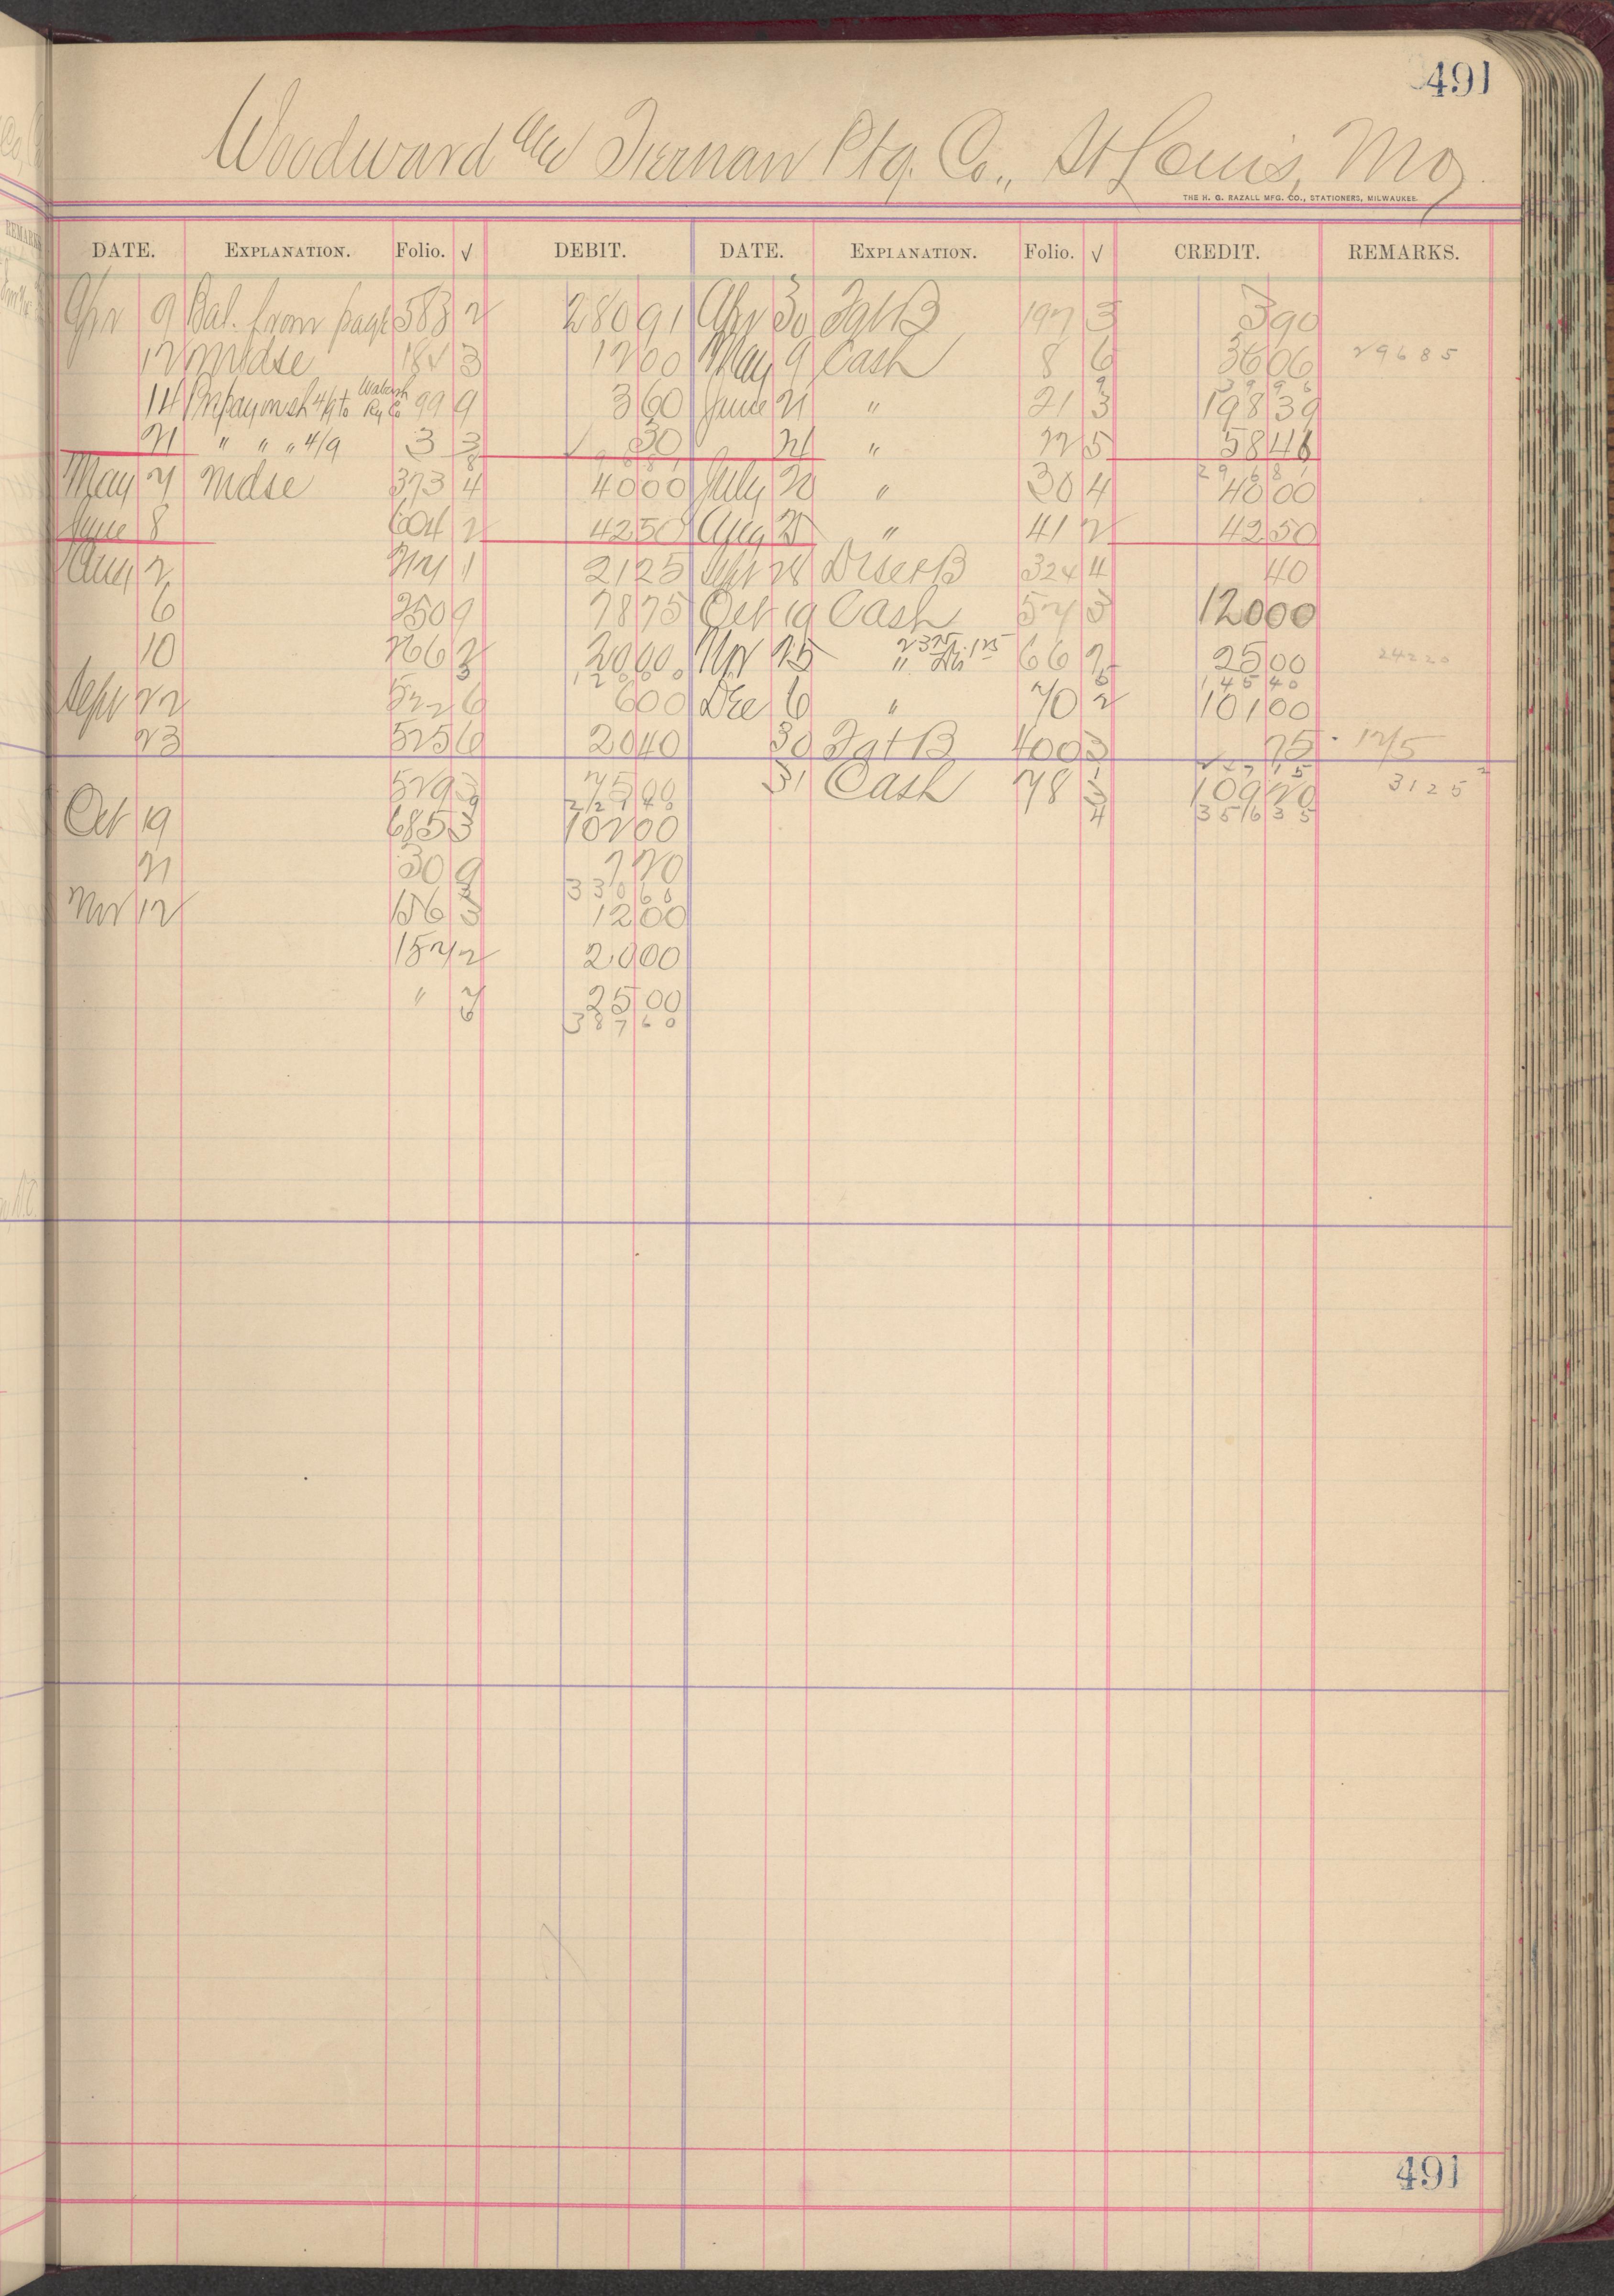 491
Woodward and Tiernan Ptg. Co., St Louis, Mo.
THE H. G. RAZALL MFG. CO., STATIONERS, MILWAUKEE.
DATE. EXPLANATION. Folio. √ DEBIT. DATE. EXPLANATION. Folio. √ CREDIT. REMARKS.
Apr 9 Bal. from page 583 2 280 91 Apr 30 Frt B 197 3 3 90
12 Mdse 184 3 12 00 May 9 Cash 8 6 36 06 29685
14 Prepay on sh 4/9 to Wabash Ry Co 99 9 3 60 June 21 " 21 3 198 39
21 " " " 4/9 3 3 30 24 " 22 5 58 46
May 7 Mdse 373 4 40 00 July 20 " 30 4 40 00
June 8 604 2 42 50 Aug 25 " 41 2 42 50
Aug 2 1 21 25 Sept 28 Disct B 324 4 40
6 250 9 78 75 Oct 19 Cash 54 3 120 00
10 266 2 20 00 Nov 25 " 66 2 25 00 24220
145 40
Sept 22 522 6 6 00 Dec 6 " 70 2 101 00
23 525 6 20 40 30 Frt B 400 3 75 1215
529 3 75 00 31 Cash 78 109 20 3125
356 35
Oct 19 685 3 102 00
21 30 9 7 20
330 60
Nov 12 156 3 12 00
157 2 20 00
" 7 25 00
387 60
491